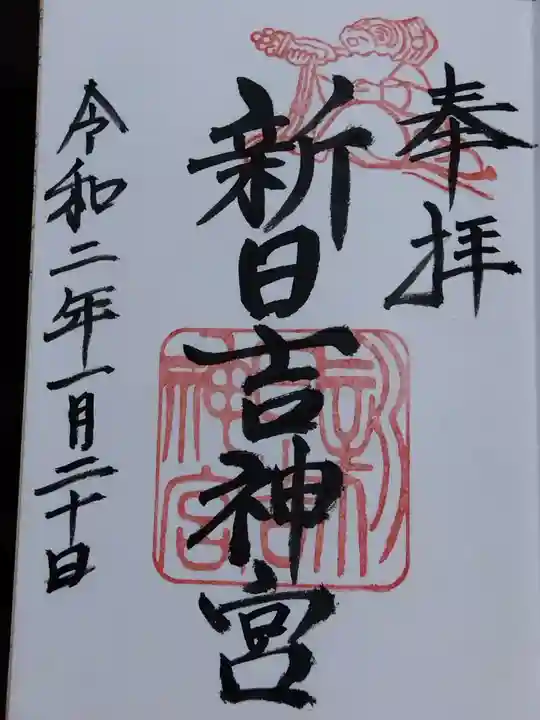 奉拝
新日吉神宮
令和二年一月二十日